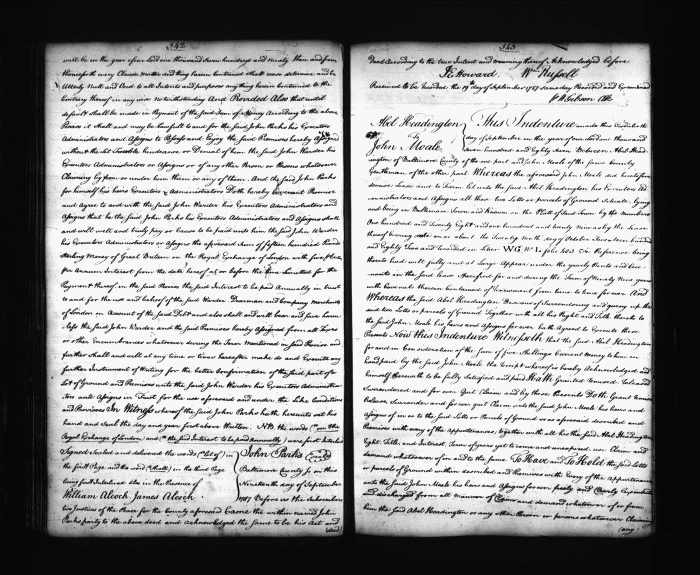 342
will be in the year of our Lord one thousand seven hundred and ninety then and from
thenceforth every Clause matter and thing herein contained shall cease determine and be
Utterly Null and Void to all Intents and purposes any thing herein contained to the
Contrary thereof in any wise notwithstanding And Provided Also that until
default shall be made in Payment of the said Sum of Money According to the above
Proviso it shall and may be lawfull to and for the said John Parks his Executors
Administrators and Assigns to Possess and Enjoy the said Premises hereby Assigned
without the Let Trouble hindrance or Denial of him the said John Warder his
Executors Administrators or Assigns or of any other Person or Persons whatsoever
Claiming by from or under him them or any of them. And the said John Parks
for himself his heirs Executors & Administrators Doth hereby Covenant Promise
and Agree to and with the said John Warder his Executors Administrators and
Assigns that he the said John Parks his Executors Administrators and Assigns shall
and will well and truly pay or Cause to be paid unto him the said John Warder
his Executors Administrators or Assigns the aforesaid Sum of fifteen hundred Pounds
Sterling Money of Great Britain on the Royal Exchange of London with five
Per Annum Interest from the date hereof at or before the time Limited for the
Payment thereof in the said Proviso the said Interest to be paid Annually in trust
to and for the use and behoof of the said Warder Dearman and Company Merchants
of London on Account of the said Debt and also shall and will
the said John Warder and the said Premises hereby Assigned from all
or other Encumbrances whatsoever during the Term mentioned in said
further shall and will at any time or times hereafter make do and Execute any
further Instrument of Writing for the better Confirmation of the said part of a
Lot of Ground and Premises unto the said John Warder his Executors Administra-
tors and Assigns in Trust for the use aforesaid and under the like Conditions
and Provisoes In Witness whereof the said John Parks hath hereunto set his
hand and Seal the day and year first above Written. NB. the words (on the
Royal Exchange of London) and (the said Interest to be paid annually) were first Interlined
Signed Sealed and delivered the words (Lot of) in
the first Page and the word (shall) in the third Page
being first Interlined also in the Presence of
William Aleoch James Aleoch
John Parks (Seal)
Baltimore County ss on this
Nineteenth day of September
1787 Before us the Subscribers
two Justices of the Peace for the County aforesaid Came the within named John
Parks party to the above deed and acknowledged the same to be his Act and
(deed)
343
Deed According to the true Intent and meaning thereof Acknowledged before
J E Howard. Wm Russell
Received to be recorded the 19th day of September 1787 same day Recorded and Examined
Wm Gibson Clk
Abel Headington
To
John Moale
This Indenture made this
day of September in the year of our Lord one thousand
seven hundred and Eighty seven Between Abel Head-
ington of Baltimore County of the one part and John Moale of the same County
Gentleman of the other part Whereas the aforesaid John Moale did heretofore
demise Lease and to Farm let unto the said Abel Headington his Executors Ad-
ministrators and Assigns all those two Lotts or parcels of Ground Situate lying
and being in Baltimore Town and Known on the Platt of said Town by the numbers
One hundred and Twenty Eight and one hundred and twenty nine as by the Lease
thereof bearing date on or about the Twenty Ninth day of October Seventeen hundred
and Eighty two and recorded in Liber W.G. No L. folio 603 &c Reference being
thereto had will fully and at Large Appear under the yearly Rents and Cove-
nants in the said Lease Specified for and during the Term of Ninety Nine years
with Covenants therein Contained of Renewment from time to time for ever And
Whereas the said Abel Headington Desirous of Surrendering and giving up the
said two Lotts or parcels of Ground Together with all his Right and Title thereto to
the said John Moale his heirs and Assigns for ever hath Agreed to Execute these
Presents Now this Indenture Witnesseth that the said Abel Headington
for and in Consideration of the Sum of five Shillings Current Money to him in
hand paid by the said John Moale the Receipt whereof is hereby Acknowledged and
himself therewith to be fully Satisfied and paid Hath Granted Remised Released
Surrendered and for ever Quit Claim and by these Presents Doth Grant Remise
Release Surrender and for ever quit Claim unto the said John Moale his heirs and
Assigns of in or to the said Lotts or Parcels of Ground as is aforesaid described and
Premises with every of the Appurtenances, together with all his the said Abel Headington
Right, Title, and Interest, Term of years yet to come and unexpired, use Claim and
demand whatsoever of in and to the same To Have and To Hold the said Lotts
or parcels of Ground within described and Premises with the Every of the Appurtenances
unto the said John Moale his heirs and Assigns for ever freely and Clearly Exonerated
and discharged from all manner of Claim and demand whatsoever of or from
him the said Abel Headington or any other Person or persons whatsoever Claiming
(any)